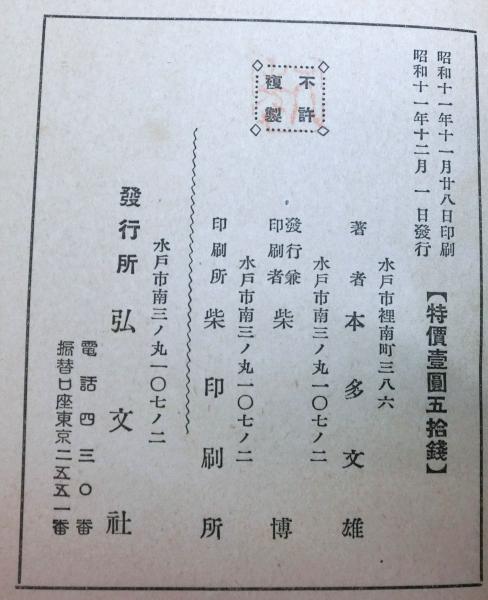 昭和十一年十一月廿八日印刷
昭和十一年十二月一日發行
【特價壹圓五拾錢】
不許
複製
水戸市裡南町三八六
著者 本多文雄
水戸市南三ノ丸一〇七ノ二
發行兼
印刷者 柴博
水戸市南三ノ丸一〇七ノ二
印刷所 柴印刷所
水戸市南三ノ丸一〇七ノ二
發行所 弘文社
電話四三〇番
振替口座東京二五五一番